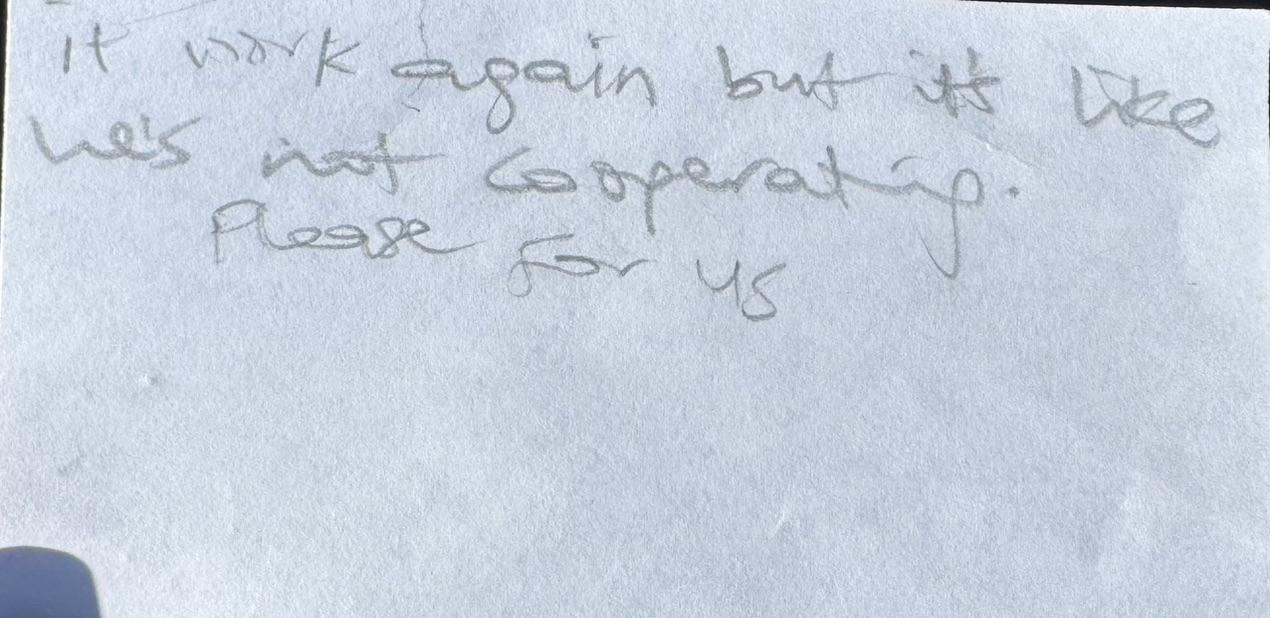 it work again but it's like
he's not cooperating.
Please for us